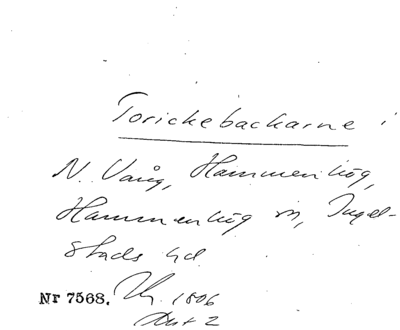 Torickebackarne i
N. Vång, Hammenhög,
Hammenhög sn, Ingel-
stads hd.
Nr 7568. 1806